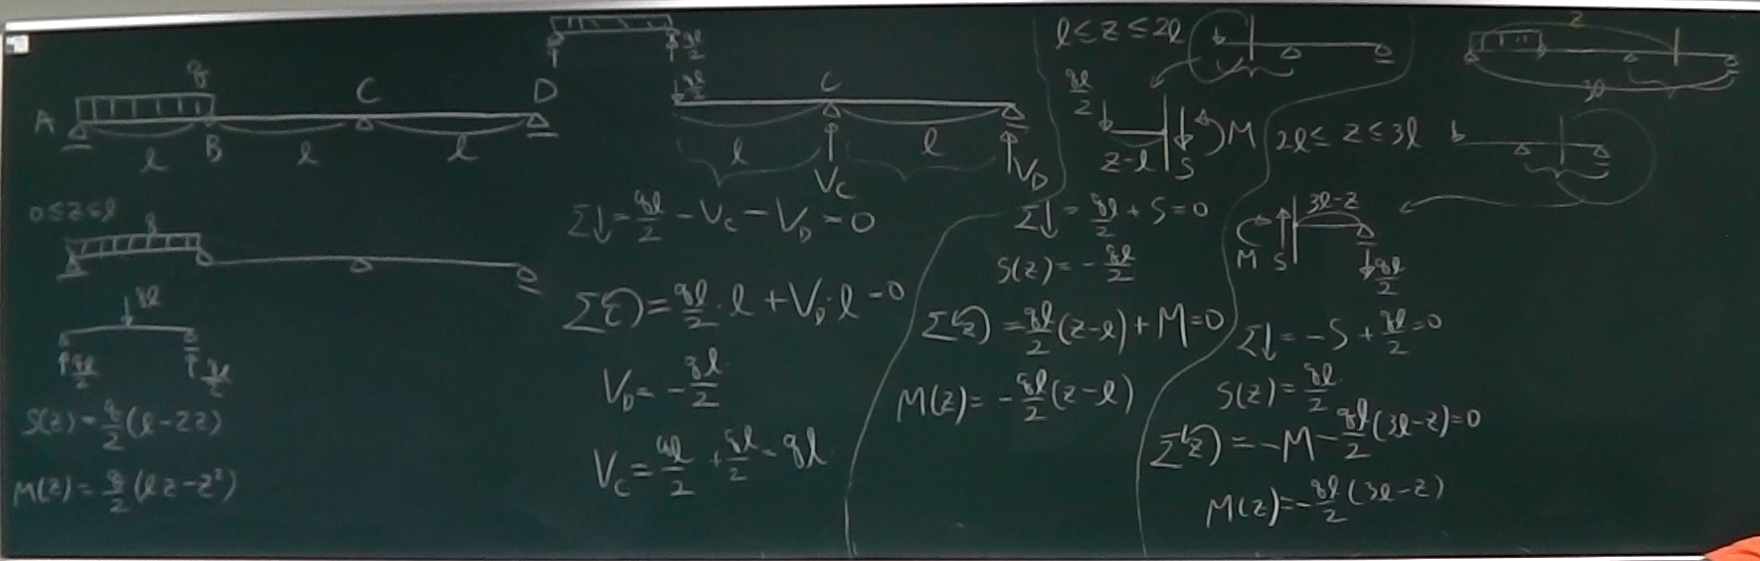 q
A
B
C
D
l
l
l
0≤z≤l
q
ql
ql/2
ql/2
S(z)=q/2(l-2z)
M(z)=q/2(lz-z²)
ql/2
ql/2
C
l
l
V_C
V_D
Σ↓=ql/2-V_C-V_D=0
=ql/2·l+V_D·l=0
V_D=-ql/2
V_C=ql/2+ql/2=ql
l≤z≤2l
ql/2
z-l
S
M
Σ↓=ql/2+S=0
S(z)=-ql/2
=ql/2(z-l)+M=0
M(z)=-ql/2(z-l)
z
3l
2l≤z≤3l
3l-z
M
S
ql/2
Σ↓=-S+ql/2=0
S(z)=ql/2
=-M-ql/2(3l-z)=0
M(z)=-ql/2(3l-z)